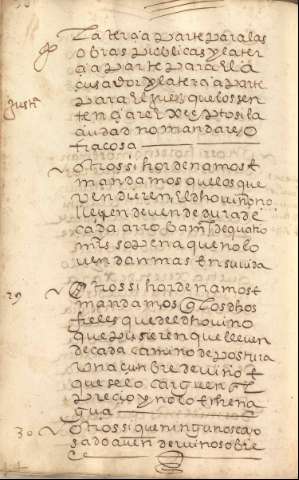 La terçia parte para las
obras publicas y la ter
çia parte para el a
cusador y la terçia parte
para el juez que lo sen
tençiare exçepto si la
çiudad no mandare o
tra cosa
Otrossi hordenamos e
mandamos que los que
vendieren el dho vino no
lleven de vendeduria de
cada arroba mas de quatro
mrs so pena que no lo
vendan mas en su vida
29 Otrossi hordenamos e
mandamos que los dhos
fieles que del dho vino
que pusieren que lleven
de cada camino de postura
una cunbre de vino e
que se lo carguen el
preçio y no lo e hena
gua
30 Otrossi que ninguno sea o
sado a vender vino sobre